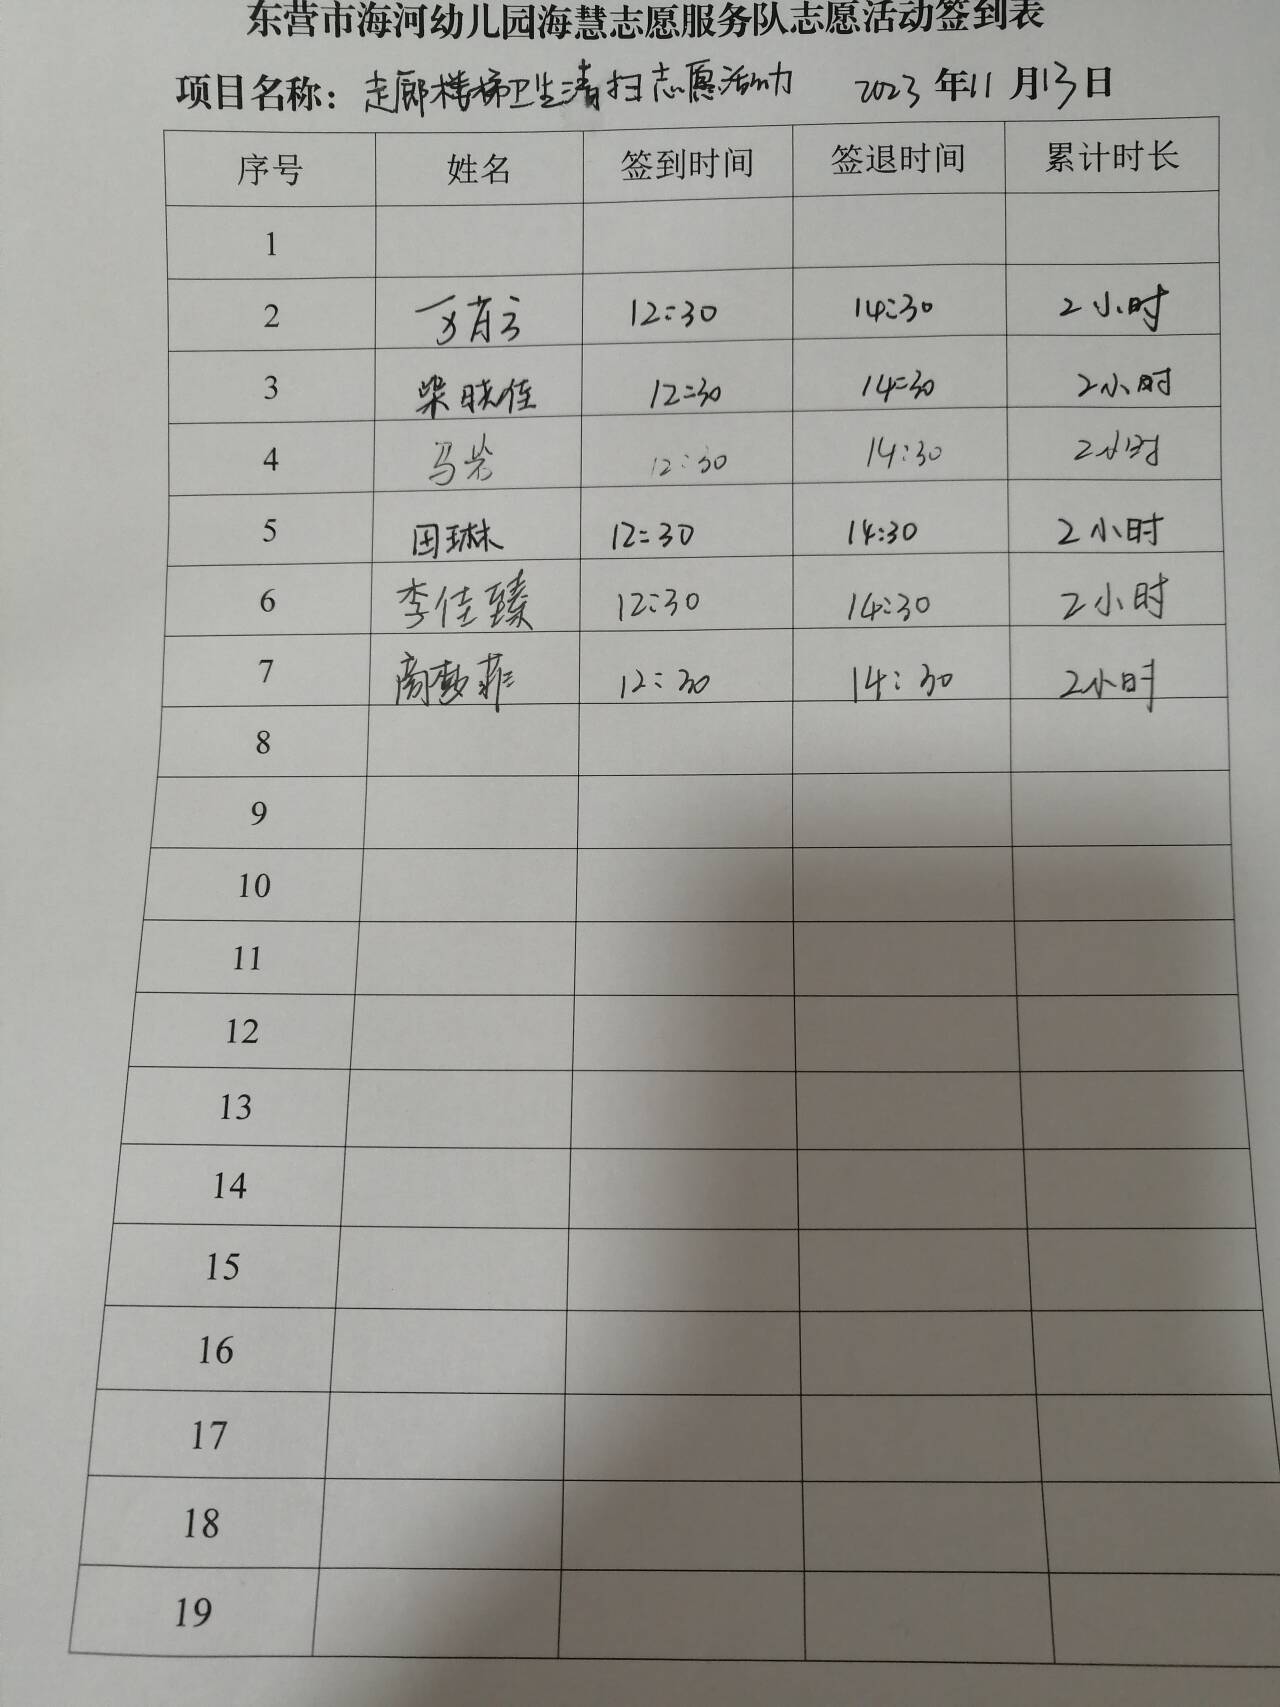 东营市海河幼儿园海慧志愿服务队志愿活动签到表
项目名称：走廊楼梯卫生清扫志愿活动 2023年11月13日
序号 姓名 签到时间 签退时间 累计时长
1
2 12:30 14:30 2小时
3 柴晓佳 12:30 14:30 2小时
4 马岩 12:30 14:30 2小时
5 田琳 12:30 14:30 2小时
6 李佳臻 12:30 14:30 2小时
7 商梦菲 12:30 14:30 2小时
8
9
10
11
12
13
14
15
16
17
18
19